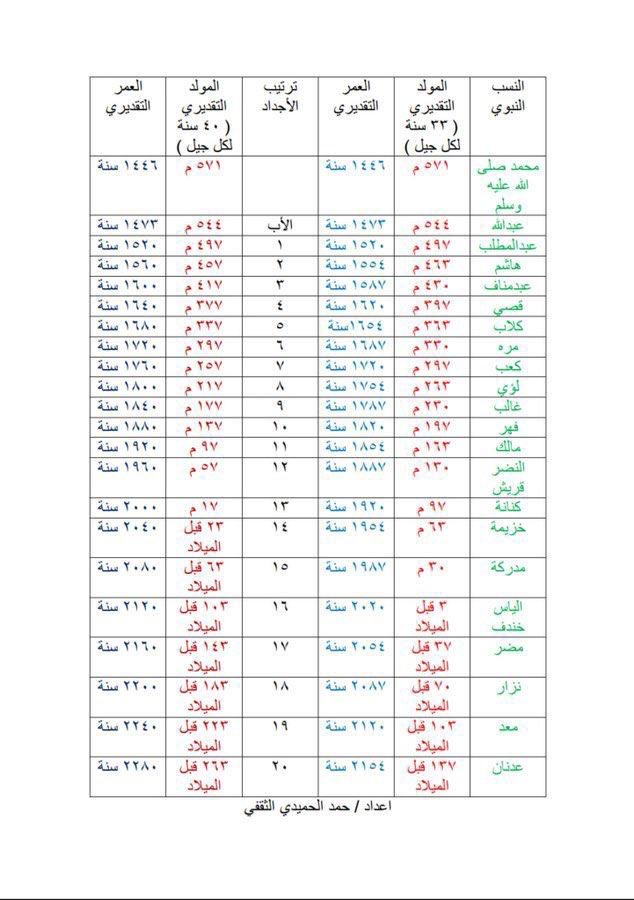 النسب النبوي | المولد التقديري ( ٣٣ سنة لكل جيل ) | العمر التقديري | ترتيب الأجداد | المولد التقديري ( ٤٠ سنة لكل جيل ) | العمر التقديري
محمد صلى الله عليه وسلم | ٥٧١ م | ١٤٤٦ سنة | | ٥٧١ م | ١٤٤٦ سنة
عبدالله | ٥٤٤ م | ١٤٧٣ سنة | الأب | ٥٤٤ م | ١٤٧٣ سنة
عبدالمطلب | ٤٩٧ م | ١٥٢٠ سنة | ١ | ٤٩٧ م | ١٥٢٠ سنة
هاشم | ٤٦٣ م | ١٥٥٤ سنة | ٢ | ٤٥٧ م | ١٥٦٠ سنة
عبدمناف | ٤٣٠ م | ١٥٨٧ سنة | ٣ | ٤١٧ م | ١٦٠٠ سنة
قصي | ٣٩٧ م | ١٦٢٠ سنة | ٤ | ٣٧٧ م | ١٦٤٠ سنة
كلاب | ٣٦٣ م | ١٦٥٤سنة | ٥ | ٣٣٧ م | ١٦٨٠ سنة
مره | ٣٣٠ م | ١٦٨٧ سنة | ٦ | ٢٩٧ م | ١٧٢٠ سنة
كعب | ٢٩٧ م | ١٧٢٠ سنة | ٧ | ٢٥٧ م | ١٧٦٠ سنة
لؤي | ٢٦٣ م | ١٧٥٤ سنة | ٨ | ٢١٧ م | ١٨٠٠ سنة
غالب | ٢٣٠ م | ١٧٨٧ سنة | ٩ | ١٧٧ م | ١٨٤٠ سنة
فهر | ١٩٧ م | ١٨٢٠ سنة | ١٠ | ١٣٧ م | ١٨٨٠ سنة
مالك | ١٦٣ م | ١٨٥٤ سنة | ١١ | ٩٧ م | ١٩٢٠ سنة
النضر قريش | ١٣٠ م | ١٨٨٧ سنة | ١٢ | ٥٧ م | ١٩٦٠ سنة
كنانة | ٩٧ م | ١٩٢٠ سنة | ١٣ | ١٧ م | ٢٠٠٠ سنة
خزيمة | ٦٣ م | ١٩٥٤ سنة | ١٤ | ٢٣ قبل الميلاد | ٢٠٤٠ سنة
مدركة | ٣٠ م | ١٩٨٧ سنة | ١٥ | ٦٣ قبل الميلاد | ٢٠٨٠ سنة
الياس خندف | ٣ قبل الميلاد | ٢٠٢٠ سنة | ١٦ | ١٠٣ قبل الميلاد | ٢١٢٠ سنة
مضر | ٣٧ قبل الميلاد | ٢٠٥٤ سنة | ١٧ | ١٤٣ قبل الميلاد | ٢١٦٠ سنة
نزار | ٧٠ قبل الميلاد | ٢٠٨٧ سنة | ١٨ | ١٨٣ قبل الميلاد | ٢٢٠٠ سنة
معد | ١٠٣ قبل الميلاد | ٢١٢٠ سنة | ١٩ | ٢٢٣ قبل الميلاد | ٢٢٤٠ سنة
عدنان | ١٣٧ قبل الميلاد | ٢١٥٤ سنة | ٢٠ | ٢٦٣ قبل الميلاد | ٢٢٨٠ سنة
اعداد / حمد الحميدي الثقفي